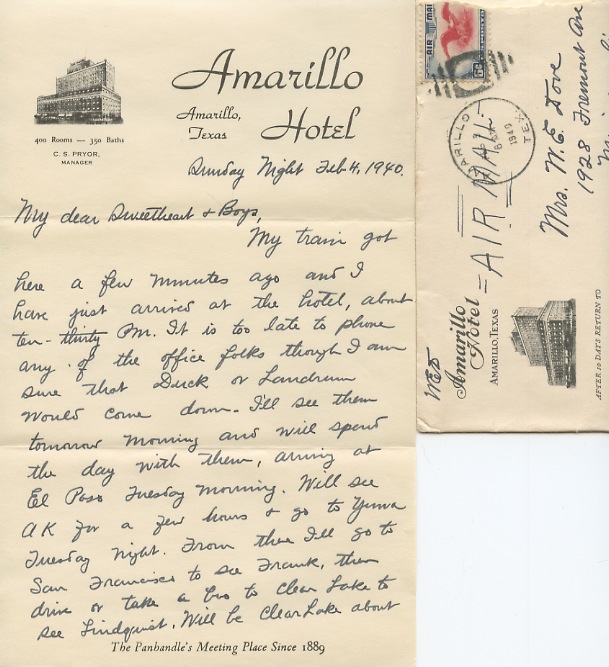 Amarillo
Hotel
Amarillo,
Texas
400 Rooms — 350 Baths
C. S. PRYOR,
MANAGER
Sunday Night Feb 4, 1940.
My dear Sweetheart & Boys,
My train got
here a few minutes ago and I
have just arrived at the hotel, about
ten-thirty PM. It is too late to phone
any of the office folks though I am
sure that Duck or Landrum
would come down. I'll see them
tomorrow morning and will spend
the day with them, arriving at
El Paso Tuesday morning. Will see
AK for a few hours & go to Yuma
Tuesday night. From there I'll go to
San Francisco to see Frank, then
drive or take a bus to Clear Lake to
see Lindquist. Will be Clear Lake about
The Panhandle's Meeting Place Since 1889
AIR MAIL
6¢
AMARILLO
TEX.
1940
=AIR MAIL=
Mrs. W. E. Dove
1928 Fremont Ave
WED
Amarillo
Hotel
AMARILLO, TEXAS
AFTER 10 DAYS RETURN TO